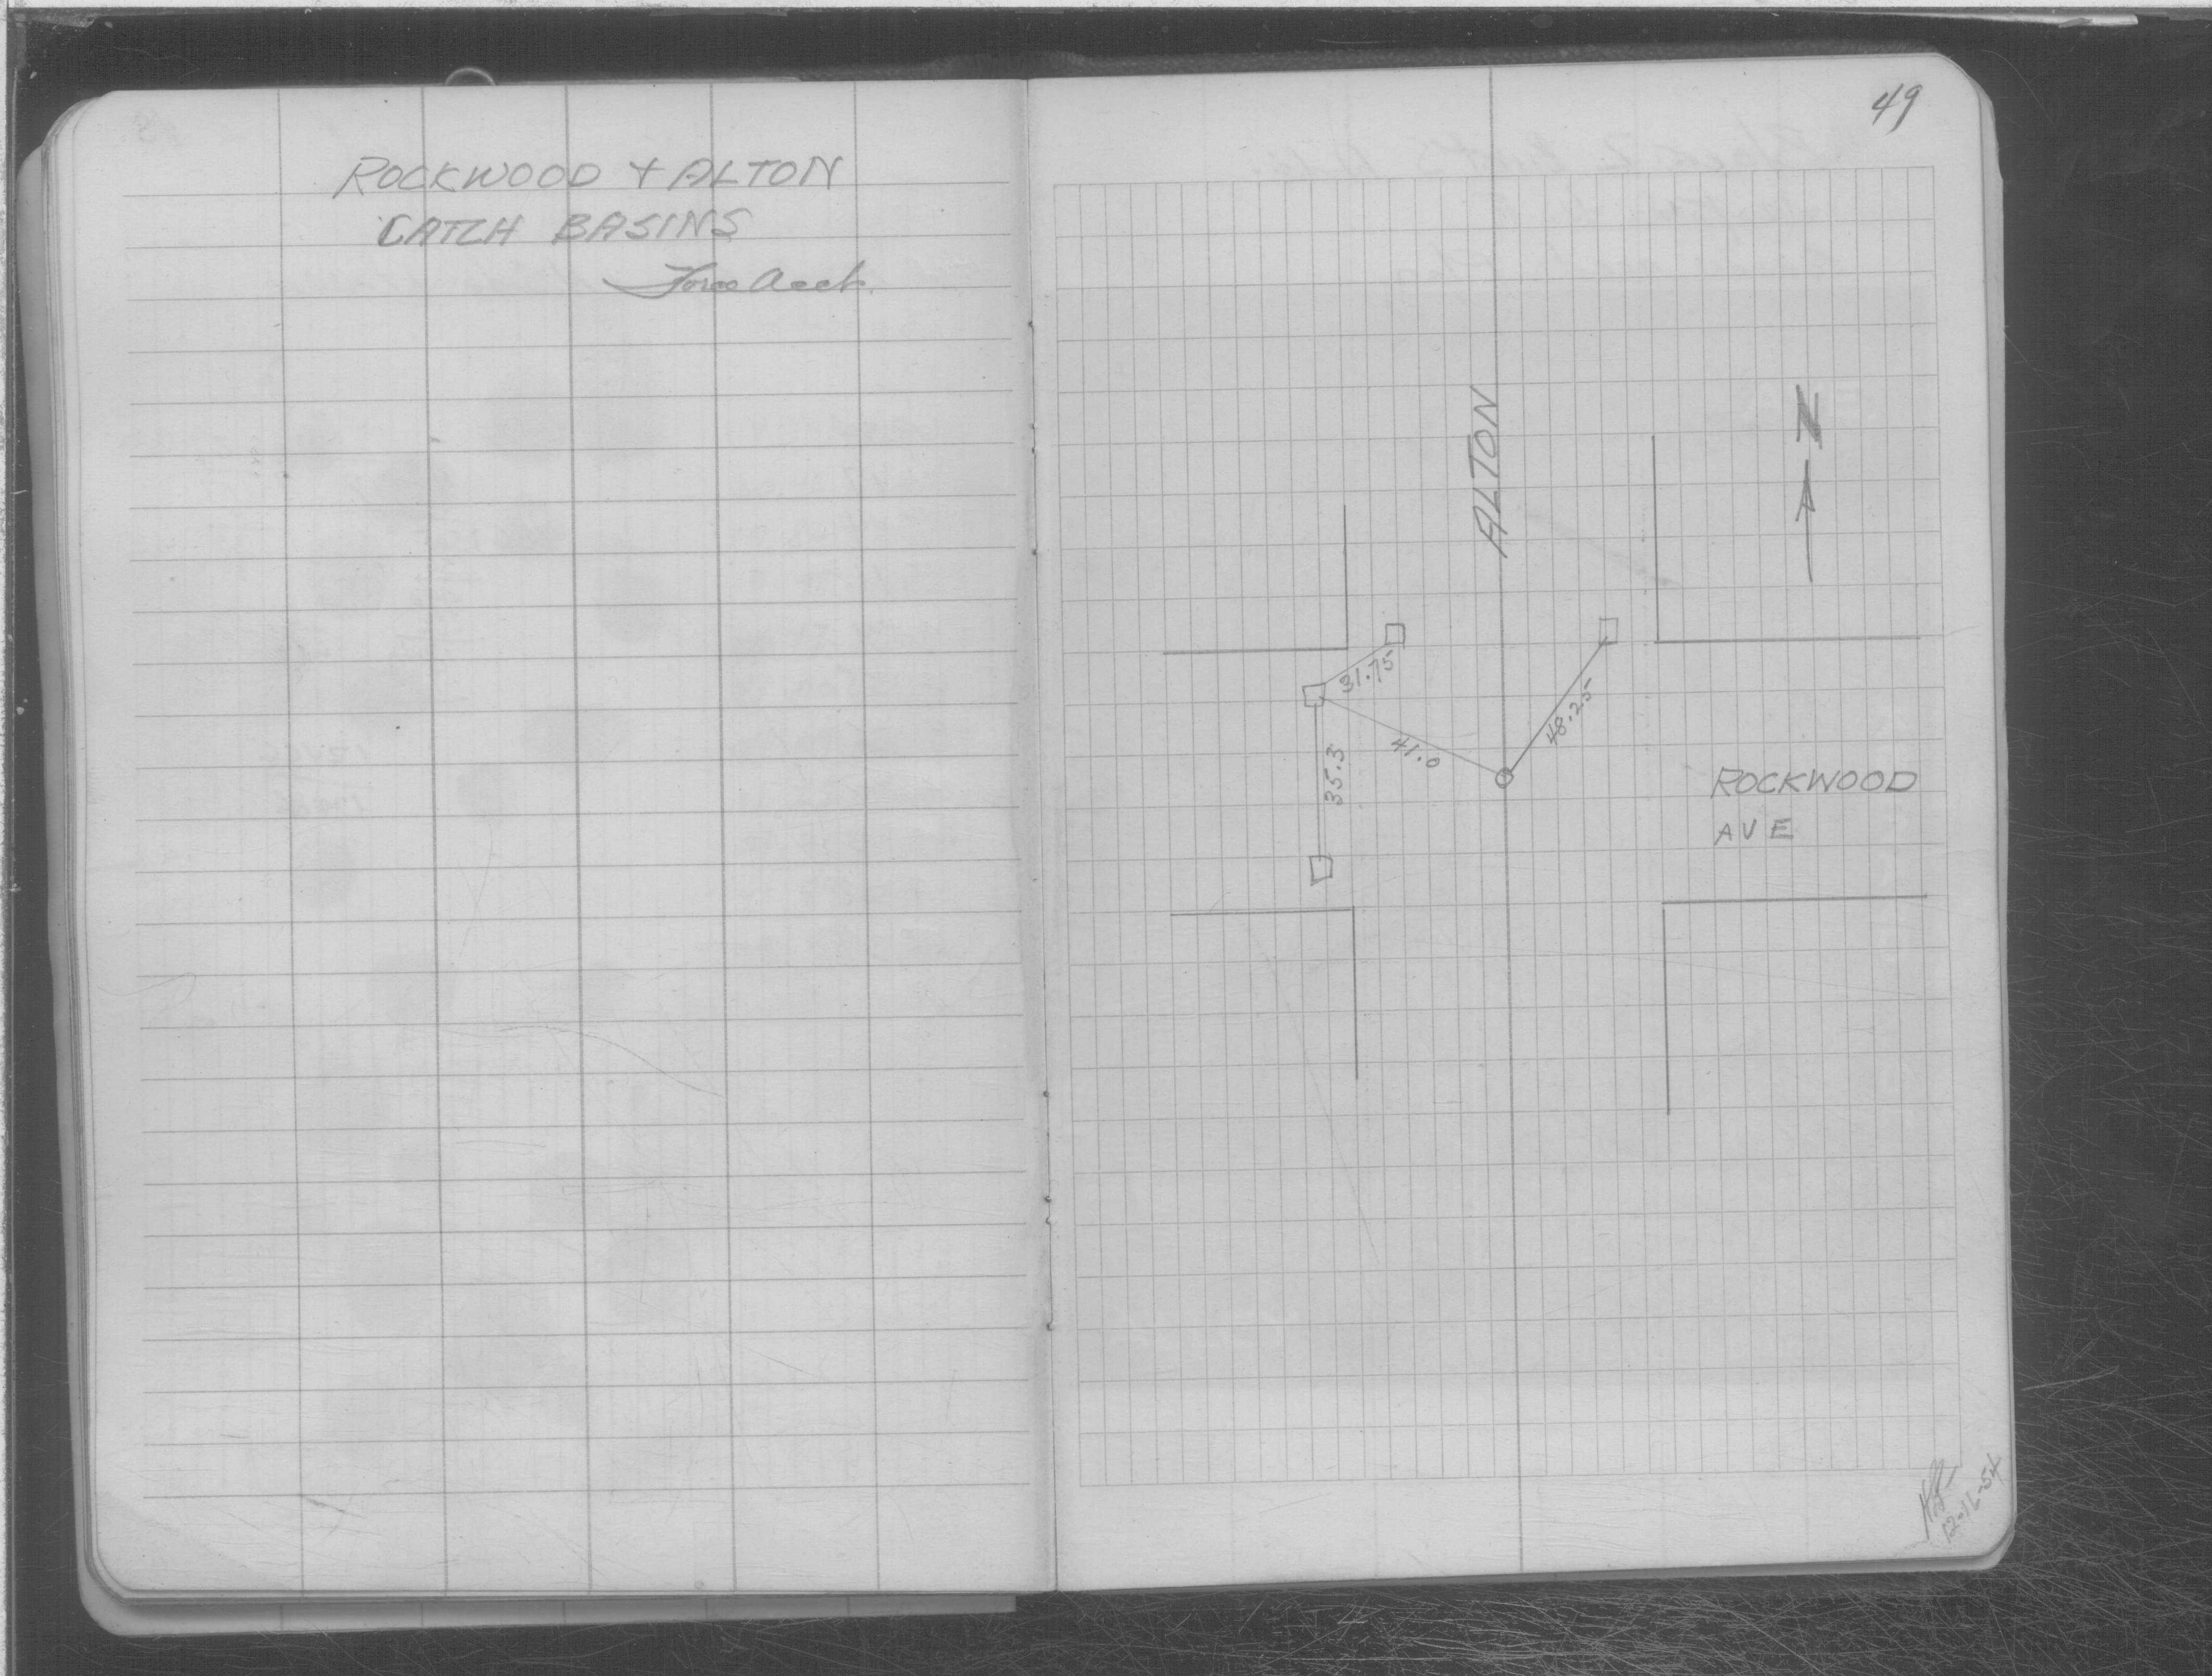 ROCKWOOD + ALTON
CATCH BASINS
Force Acct.
49
ALTON
N
31.75
48.25
41.0
35.3
ROCKWOOD
AVE
12-16-54